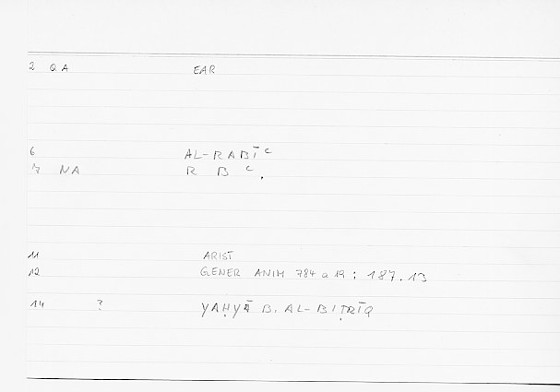 2 QA EAR
6 AL-RABĪᶜ
7 NA R B ᶜ.
11 ARIST
12 GENER ANIM 784 a 19 : 187.13
14 ? YAḤYĀ B. AL-BIṬRĪQ